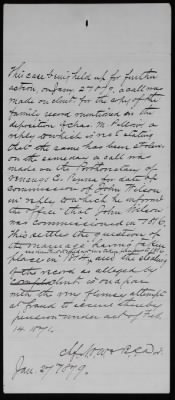 This case being held up for further
action, on Jan 27 1879, a call was
made on clmt. for the copy of the
family record mentioned in the
deposition of Chas. M. Wilson, a
reply to which is rec'd stating
that the same has been stolen.
on the same day a call was
made on the Prothonotary of
Venango Co. Penna for date of
commission of John Wilson
in reply to which he informs
the Office that John Wilson
was commissioned in 1786.
This settles the question of
the marriage having taken
place in and the stealing
of the record as alleged by
complainant, is on a par
with the very flimsy attempt
at fraud to secure thereby
pension under act of Feb
14. 1871.
Jan. 27 1879.